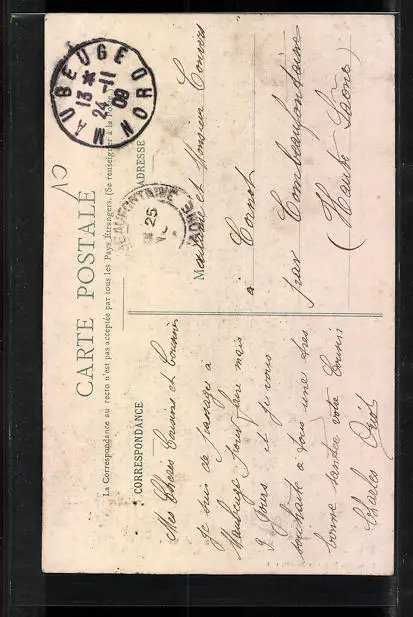 CARTE POSTALE
La Correspondance au recto n'est pas acceptée par tous les Pays Étrangers. (Se renseigner à la Poste)
CORRESPONDANCE
Mes Chères Cousins et Cousines
Je suis de passage à
Maubeuge pour fare mais
2 Jours et je vous
souhaite à tous une tres
bonne santée votre Cousin
Charles
ADRESSE
MAUBEUGE NORD
13 *
24 - 11
09
25
Madame et Monsieur
à Cornot
par Combeaufontaine
(Haute Saône)